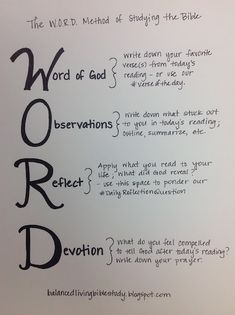 The W.O.R.D. Method of Studying the Bible
Word of God
Write down your favorite
verse(s) from today's
reading - or use our
#verseoftheday.
Observations
Write down what stuck out
to you in today's reading;
outline, summarize, etc.
Reflect
Apply what you read to your
life. What did God reveal?
- use this space to ponder our
#DailyReflectionQuestion
Devotion
What do you feel compelled
to tell God after today's reading?
Write down your prayer.
balancedlivingbiblestudy.blogspot.com